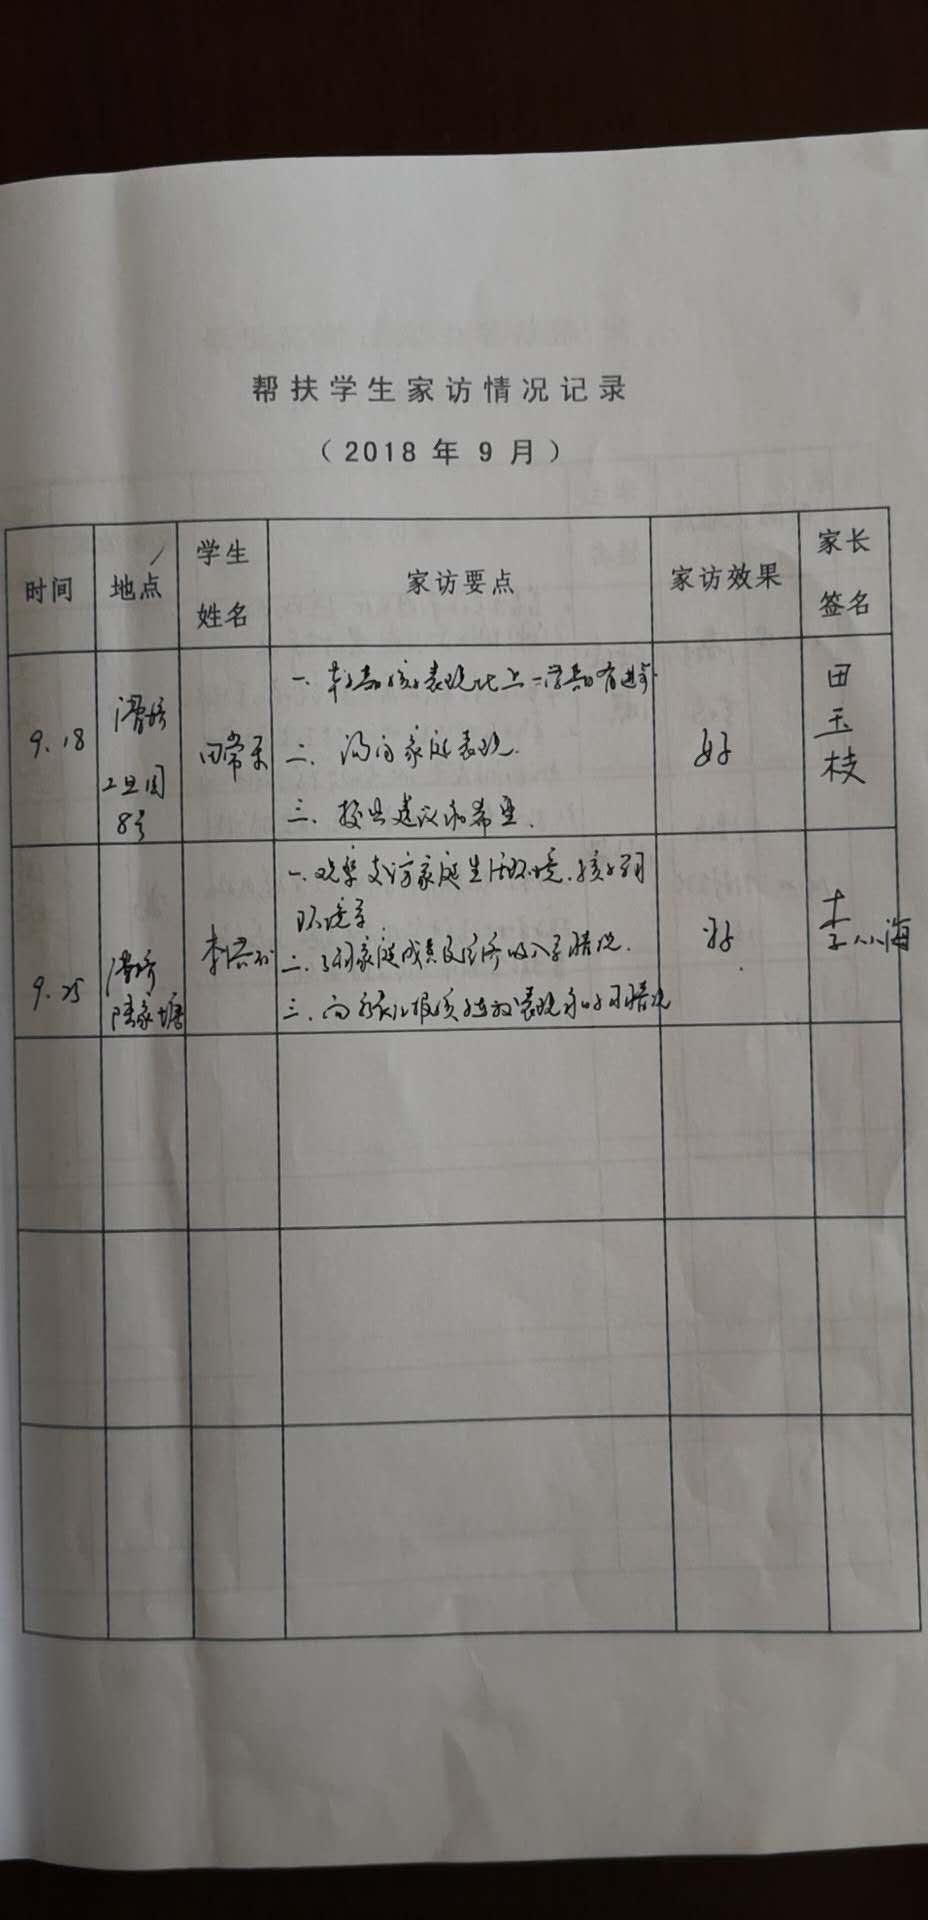 帮扶学生家访情况记录
（2018 年 9 月）
时间 地点 学生姓名 家访要点 家访效果 家长签名
9.18
8号
田常
一、本学期孩子表现比上一学期有进步
二、询问家庭表现.
三、提出建议和希望.
好
田玉枝
9.25
陆家塘
李
一、观察走访家庭生活环境、孩子学习
环境等
二、了解家庭成员及经济收入等情况.
三、向家长汇报孩子在校表现和学习情况
好
李小海